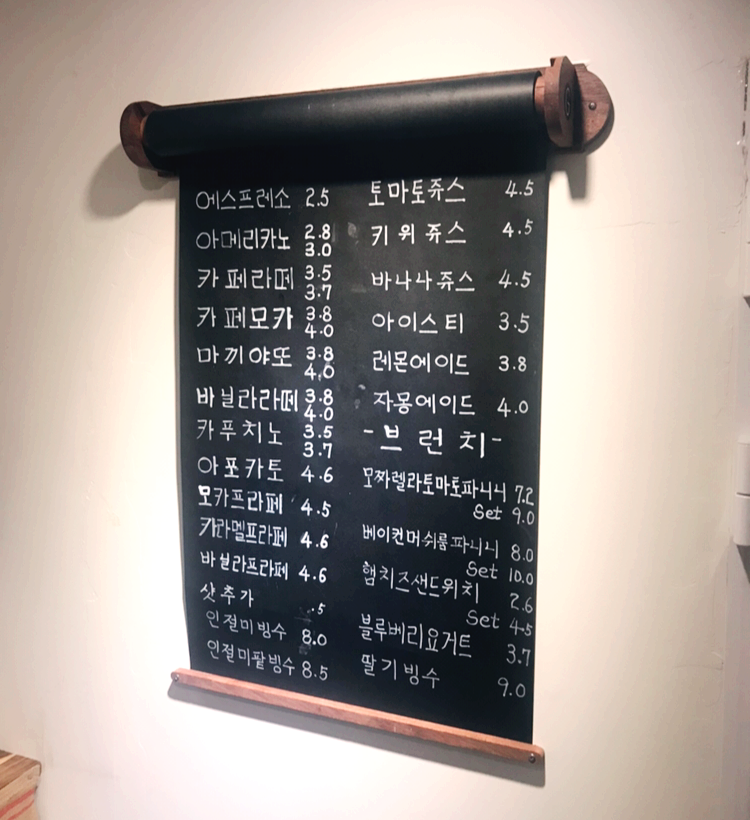 에스프레소 2.5
아메리카노 2.8
3.0
카페라떼 3.5
3.7
카페모카 3.8
4.0
마끼야또 3.8
4.0
바닐라라떼 3.8
4.0
카푸치노 3.5
3.7
아포카토 4.6
모카프라페 4.5
카라멜프라페 4.6
바닐라프라페 4.6
샷추가 .5
인절미빙수 8.0
인절미팥빙수 8.5
토마토쥬스 4.5
키위쥬스 4.5
바나나쥬스 4.5
아이스티 3.5
레몬에이드 3.8
자몽에이드 4.0
-브런치-
모짜렐라토마토파니니 7.2
Set 9.0
베이컨머쉬룸파니니 8.0
Set 10.0
햄치즈샌드위치 2.6
Set 4.5
블루베리요거트 3.7
딸기빙수 9.0